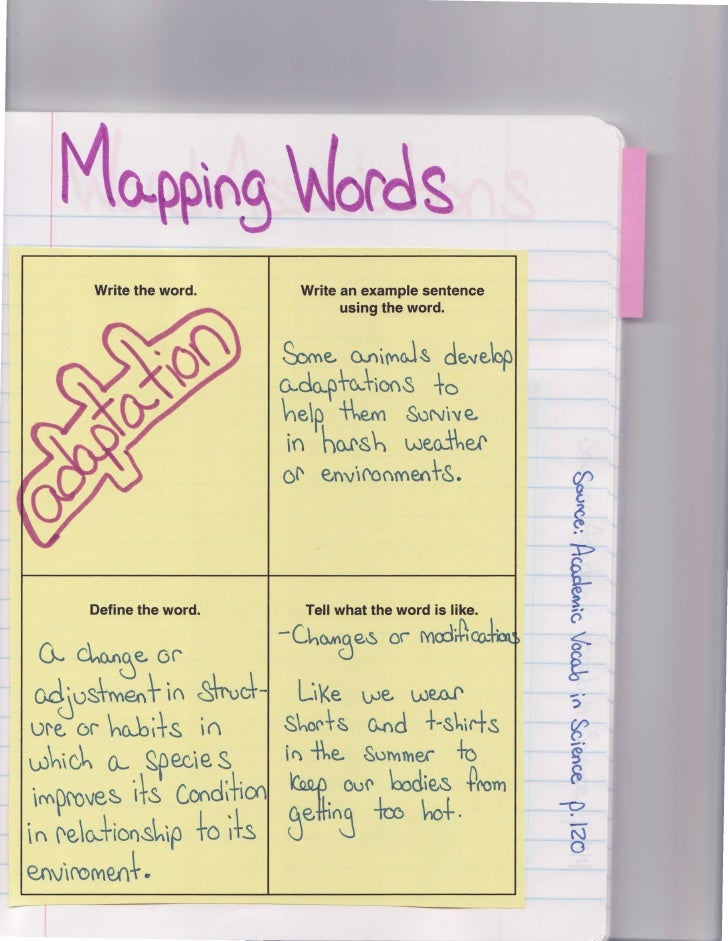 Mapping Words
Write the word.
adaptation
Write an example sentence
using the word.
Some animals develop
adaptations to
help them survive
in harsh weather
or environments.
Define the word.
a change or
adjustment in struct-
ure or habits in
which a species
improves its condition
in relationship to its
enviroment.
Tell what the word is like.
-Changes or modifications
Like we wear
shorts and t-shirts
in the summer to
keep our bodies from
getting too hot.
Source: Academic Vocab in Science p.120